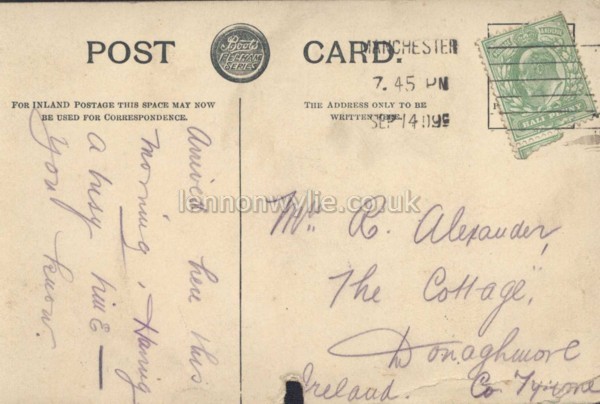 POST CARD.
Boots
PELHAM
SERIES
FOR INLAND POSTAGE THIS SPACE MAY NOW
BE USED FOR CORRESPONDENCE.
THE ADDRESS ONLY TO BE
WRITTEN
MANCHESTER
7.45 PM
SEP 14
HALF
Arrived here this
morning, Having
a busy time —
you know.
lennonwylie.co.uk
Mr. R. Alexander,
The Cottage,
Donaghmore
Ireland. Co. Tyrone